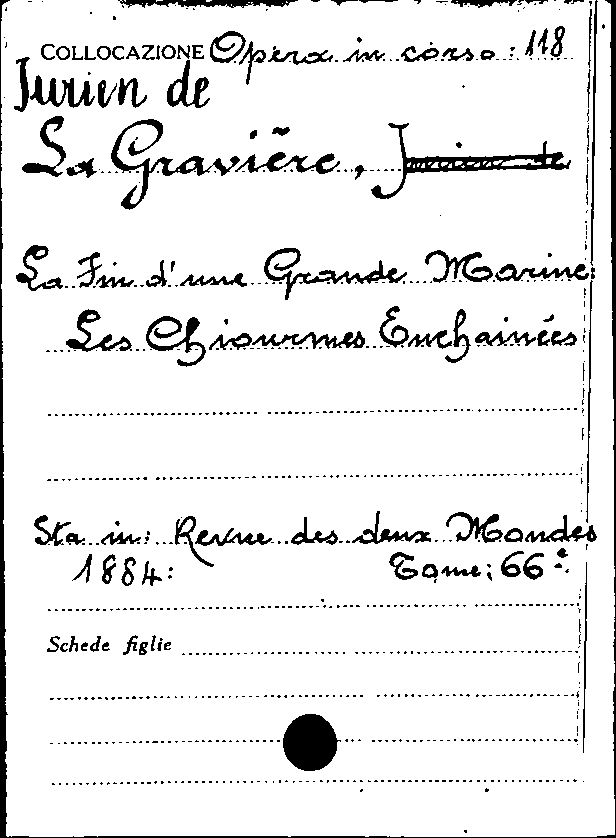 COLLOCAZIONE Opera in corso: 118
Jurien de
La Gravière, Jurien de
La Fin d'une Grande Marine:
Les Chiourmes Enchainées
Sta in: Revue des deux Mondes
1884: Tome: 66e:
Schede figlie